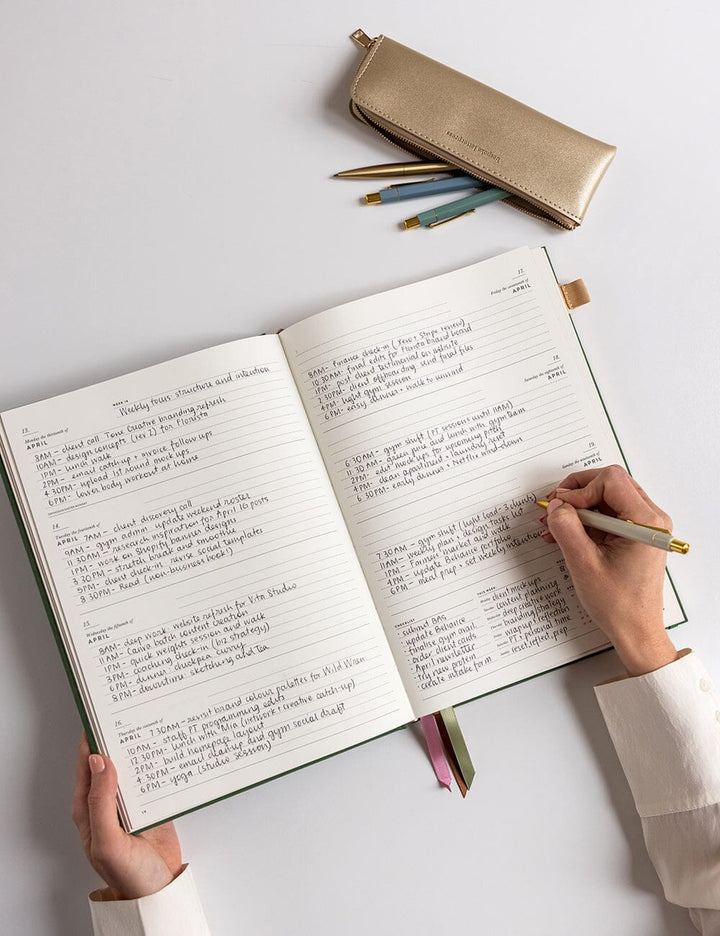 WEEK 16
Weekly focus: structure and intention
13.
Monday the thirteenth of
APRIL
8AM - client call Tone Creative branding refresh
10AM - design concepts (rev 2) for Florista
1PM - lunch walk
2PM - email catch up + invoice follow ups
4:30PM - upload 1st round mock ups
6PM - lower body workout at home
14.
Tuesday the fourteenth of
APRIL
7AM - client discovery call
9AM - gym admin: update weekend roster
11:30AM - research inspiration for April 16 posts
1PM - work on Shopify banner designs
3:30PM - stretch break and smoothie
5PM - client check-in: revise social templates
8:30PM - Read (non-business book!)
15.
Wednesday the fifteenth of
APRIL
8AM - deep work: website refresh for Vita Studio
11AM - Canva batch content creation
1PM - quick weights session and walk
3PM - coaching check-in (biz strategy)
6PM - dinner: chickpea curry
8PM - downtime: sketching and tea
16.
Thursday the sixteenth of
APRIL
7:30AM - revisit brand colour palettes for Wild Wren
10AM - staff PT programming edits
12:30PM - lunch with Mia (network + creative catch-up)
2PM - build homepage layout
4:30PM - email clean-up and gym social draft
6PM - yoga (studio session)
17.
Friday the seventeenth of
APRIL
8AM - finance check-in (Xero + Stripe review)
10:30AM - final edits for Florista brand board
1PM - post client testimonial on website
2:30PM - client offboarding: send final files
4PM - light gym session
6PM - easy dinner + walk to unwind
18.
Saturday the eighteenth of
APRIL
6:30AM - gym shift (PT sessions until 11AM)
11:30AM - green juice and lunch with gym team
2PM - edit mock-ups for upcoming pitch
4PM - clean apartment + laundry reset
6:30PM - early dinner + Netflix wind-down
19.
Sunday the nineteenth of
APRIL
7:30AM - gym shift (light load - 3 clients)
11AM - weekly plan + design tasks
1PM - Farmers market and walk
4PM - update Behance portfolio
6PM - meal prep + set weekly intention
CHECKLIST
submit BAS
update Behance
finalise gym avail.
order client cards
April newsletter
try new protein
create intake form
THIS WEEK
client mock ups
content planning
deep creative work
branding strategy
wrap up + reflection
PT, personal time
reset, light prep